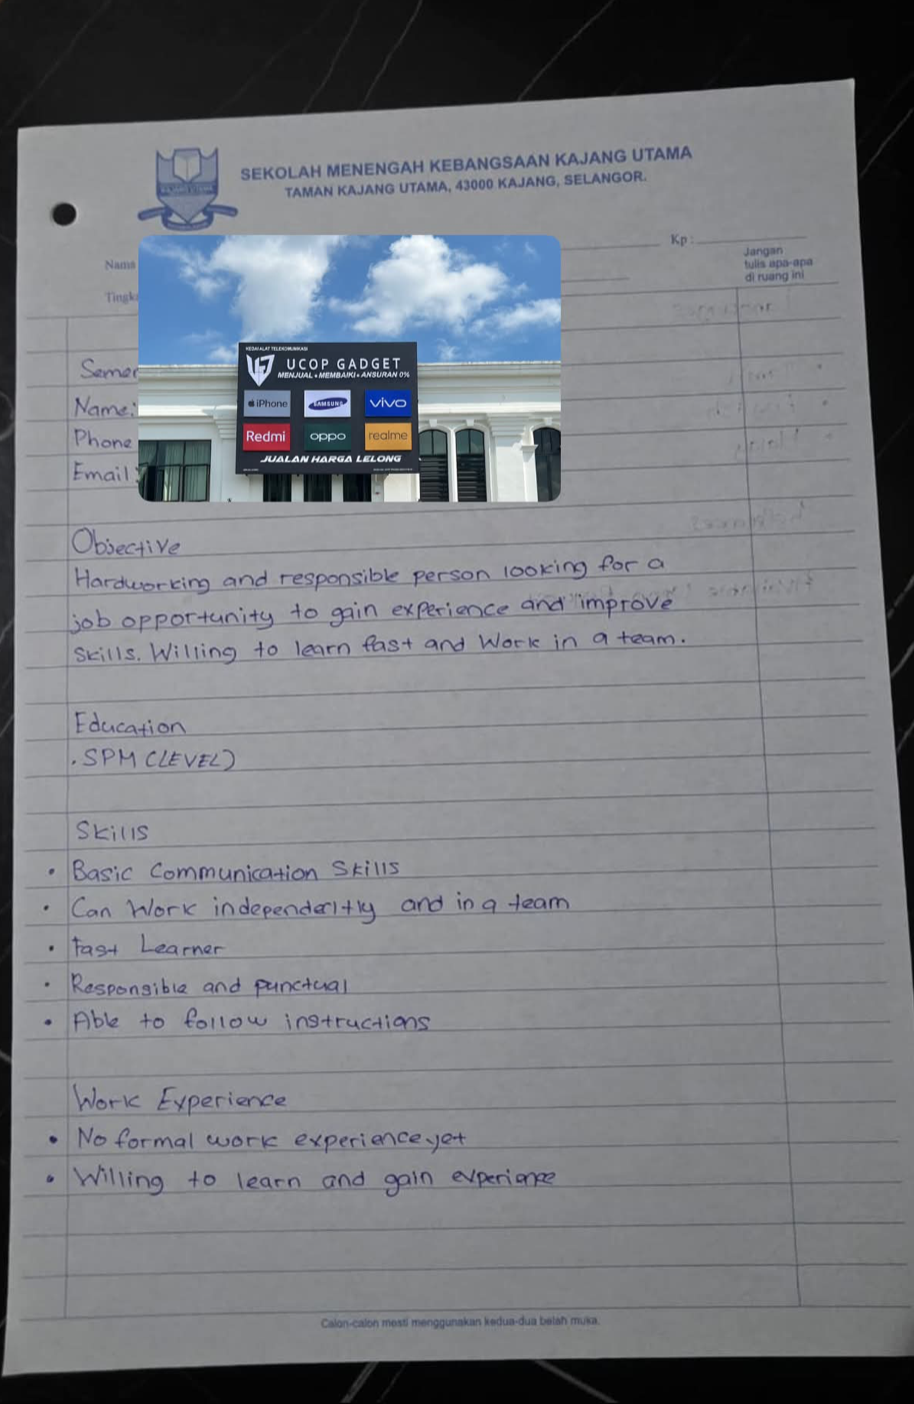 SEKOLAH MENENGAH KEBANGSAAN KAJANG UTAMA
TAMAN KAJANG UTAMA, 43000 KAJANG, SELANGOR.
KAJANG UTAMA
Kp :
Nama
Jangan
tulis apa-apa
di ruang ini
Tingka
KEDAI ALAT TELEKOMUNIKASI
UCOP GADGET
MENJUAL • MEMBAIKI • ANSURAN 0%
iPhone SAMSUNG vivo
Redmi oppo realme
JUALAN HARGA LELONG
Name:
Phone
Email:
Objective
Hardworking and responsible person looking for a
job opportunity to gain experience and improve
skills. Willing to learn fast and Work in a team.
Education
. SPM (LEVEL)
Skills
• Basic Communication Skills
• Can Work independentty and in a team
• Fast Learner
• Responsible and punctual
• Able to follow instructions
Work Experience
• No formal work experience yet
• Willing to learn and gain experience
Calon-calon mesti menggunakan kedua-dua belah muka.